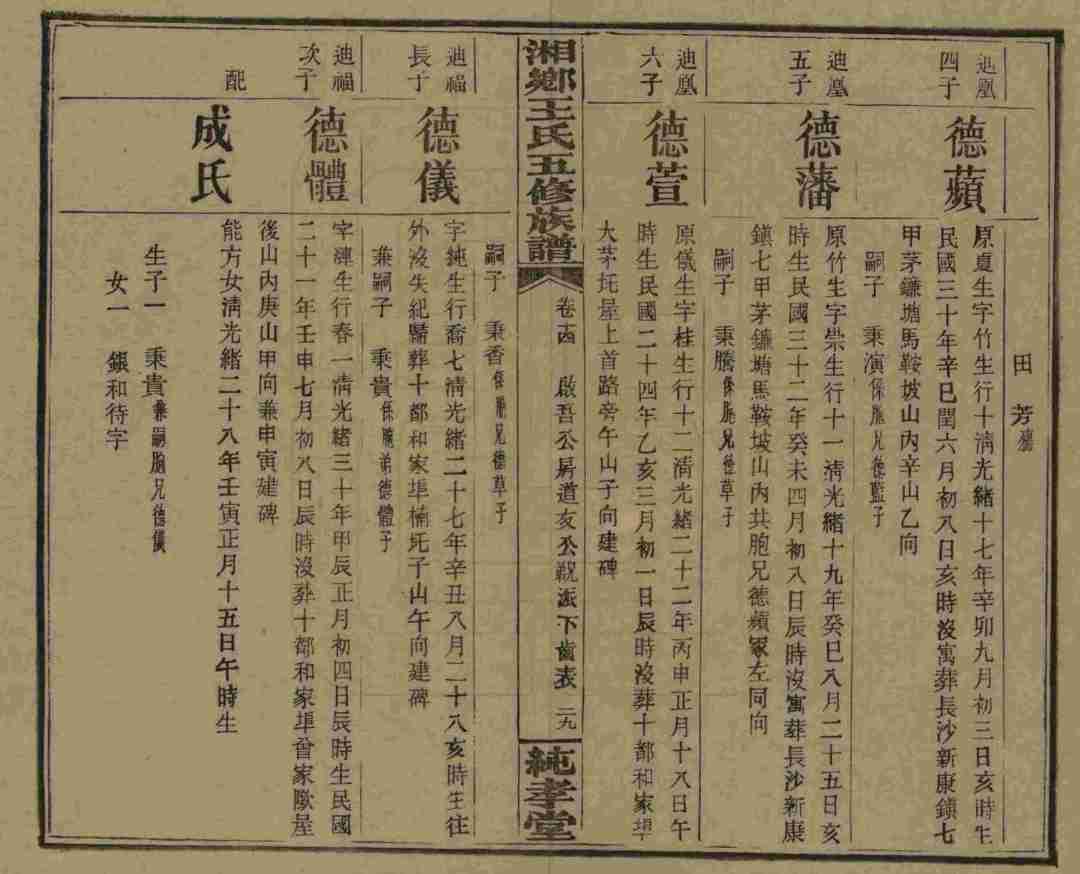 田 芳
迪凰
四子
德蘋
原夏生字竹生行十清光緒十七年辛卯九月初三日亥時生
民國三十年辛巳閏六月初八日亥時沒寓葬長沙新康鎮七
甲茅鐮塘馬鞍坡山內辛山乙向
嗣子 秉演係胞兄德藍子
迪凰
五子
德藩
原竹生字崇生行十一清光緒十九年癸巳八月二十五日亥
時生民國三十二年癸未四月初八日辰時沒寓葬長沙新康
鎮七甲茅鐮塘馬鞍坡山內共胞兄德蘋冢左同向
嗣子 秉騰係胞兄德草子
迪凰
六子
德萱
原儀生字桂生行十二清光緒二十二年丙申正月十八日午
時生民國二十四年乙亥三月初一日辰時沒葬十都和家埠
大茅托屋上首路旁午山子向建碑
湘鄉王氏五修族譜
卷十四 啟吾公房道友公 派下齒表 二九
純孝堂
嗣子 秉香係胞兄德草子
迪福
長子
德儀
字純生行喬七清光緒二十七年辛丑八月二十八亥時生往
外沒失紀歸葬十都和家埠楠圫子山午向建碑
兼嗣子 秉貴係胞弟德體子
迪福
次子
德體
字連生行春一清光緒三十年甲辰正月初四日辰時生民國
二十一年壬申七月初八日辰時沒葬十都和家埠曾家 屋
後山內庚山甲向兼申寅建碑
配
成氏
能方女清光緒二十八年壬寅正月十五日午時生
生子一 秉貴兼嗣胞兄德儀
女一 銀和待字